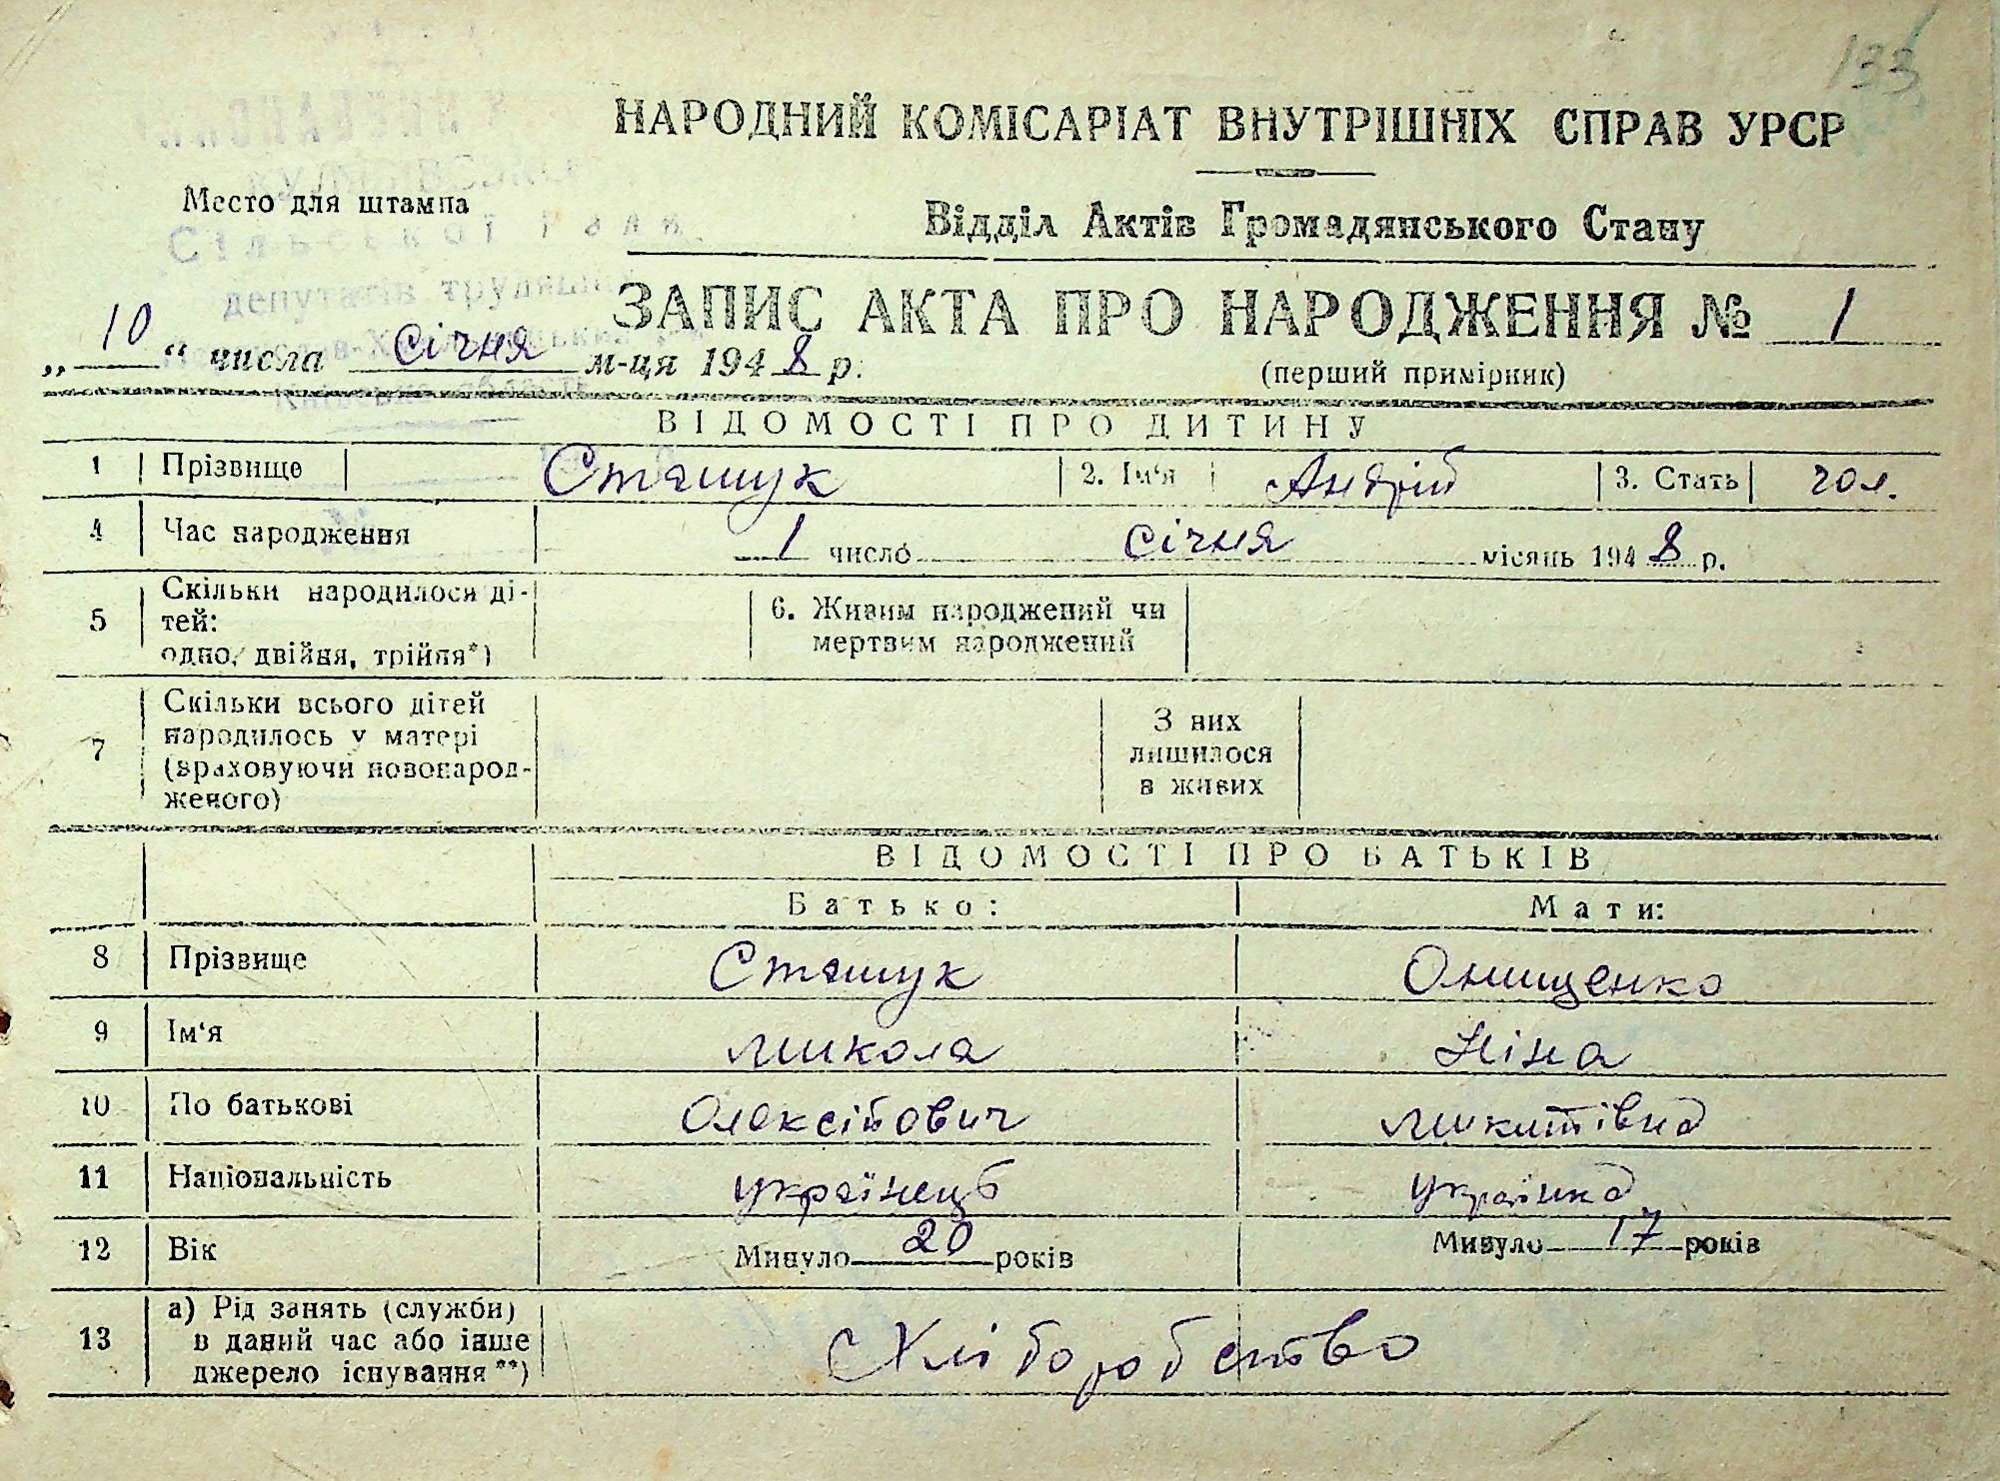 133
НАРОДНИЙ КОМІСАРІАТ ВНУТРІШНІХ СПРАВ УРСР
Место для штампа
Відділ Актів Громадянського Стану
Сільської
депутатів трудящих
ЗАПИС АКТА ПРО НАРОДЖЕННЯ № 1
„ 10 “ числа січня м-ця 1948 р.
(перший примірник)
ВІДОМОСТІ ПРО ДИТИНУ
1 Прізвище Сташук 2. Ім‘я Андрій 3. Стать чол.
4 Час народження 1 число січня місяць 1948 р.
5 Скільки народилося ді-
тей:
одно, двійня, трійня*)
6. Живим народжений чи
мертвим народжений
7 Скільки всього дітей
народилось у матері
(враховуючи новонарод-
женого)
З них
лишилося
в живих
ВІДОМОСТІ ПРО БАТЬКІВ
Батько: Мати:
8 Прізвище Сташук Онищенко
9 Ім‘я Микола Ніна
10 По батькові Олексійович Микитівна
11 Національність українець українка
12 Вік Минуло 20 років Минуло 17 років
13 а) Рід занять (служби)
в даний час або інше
джерело існування**)
Хліборобство